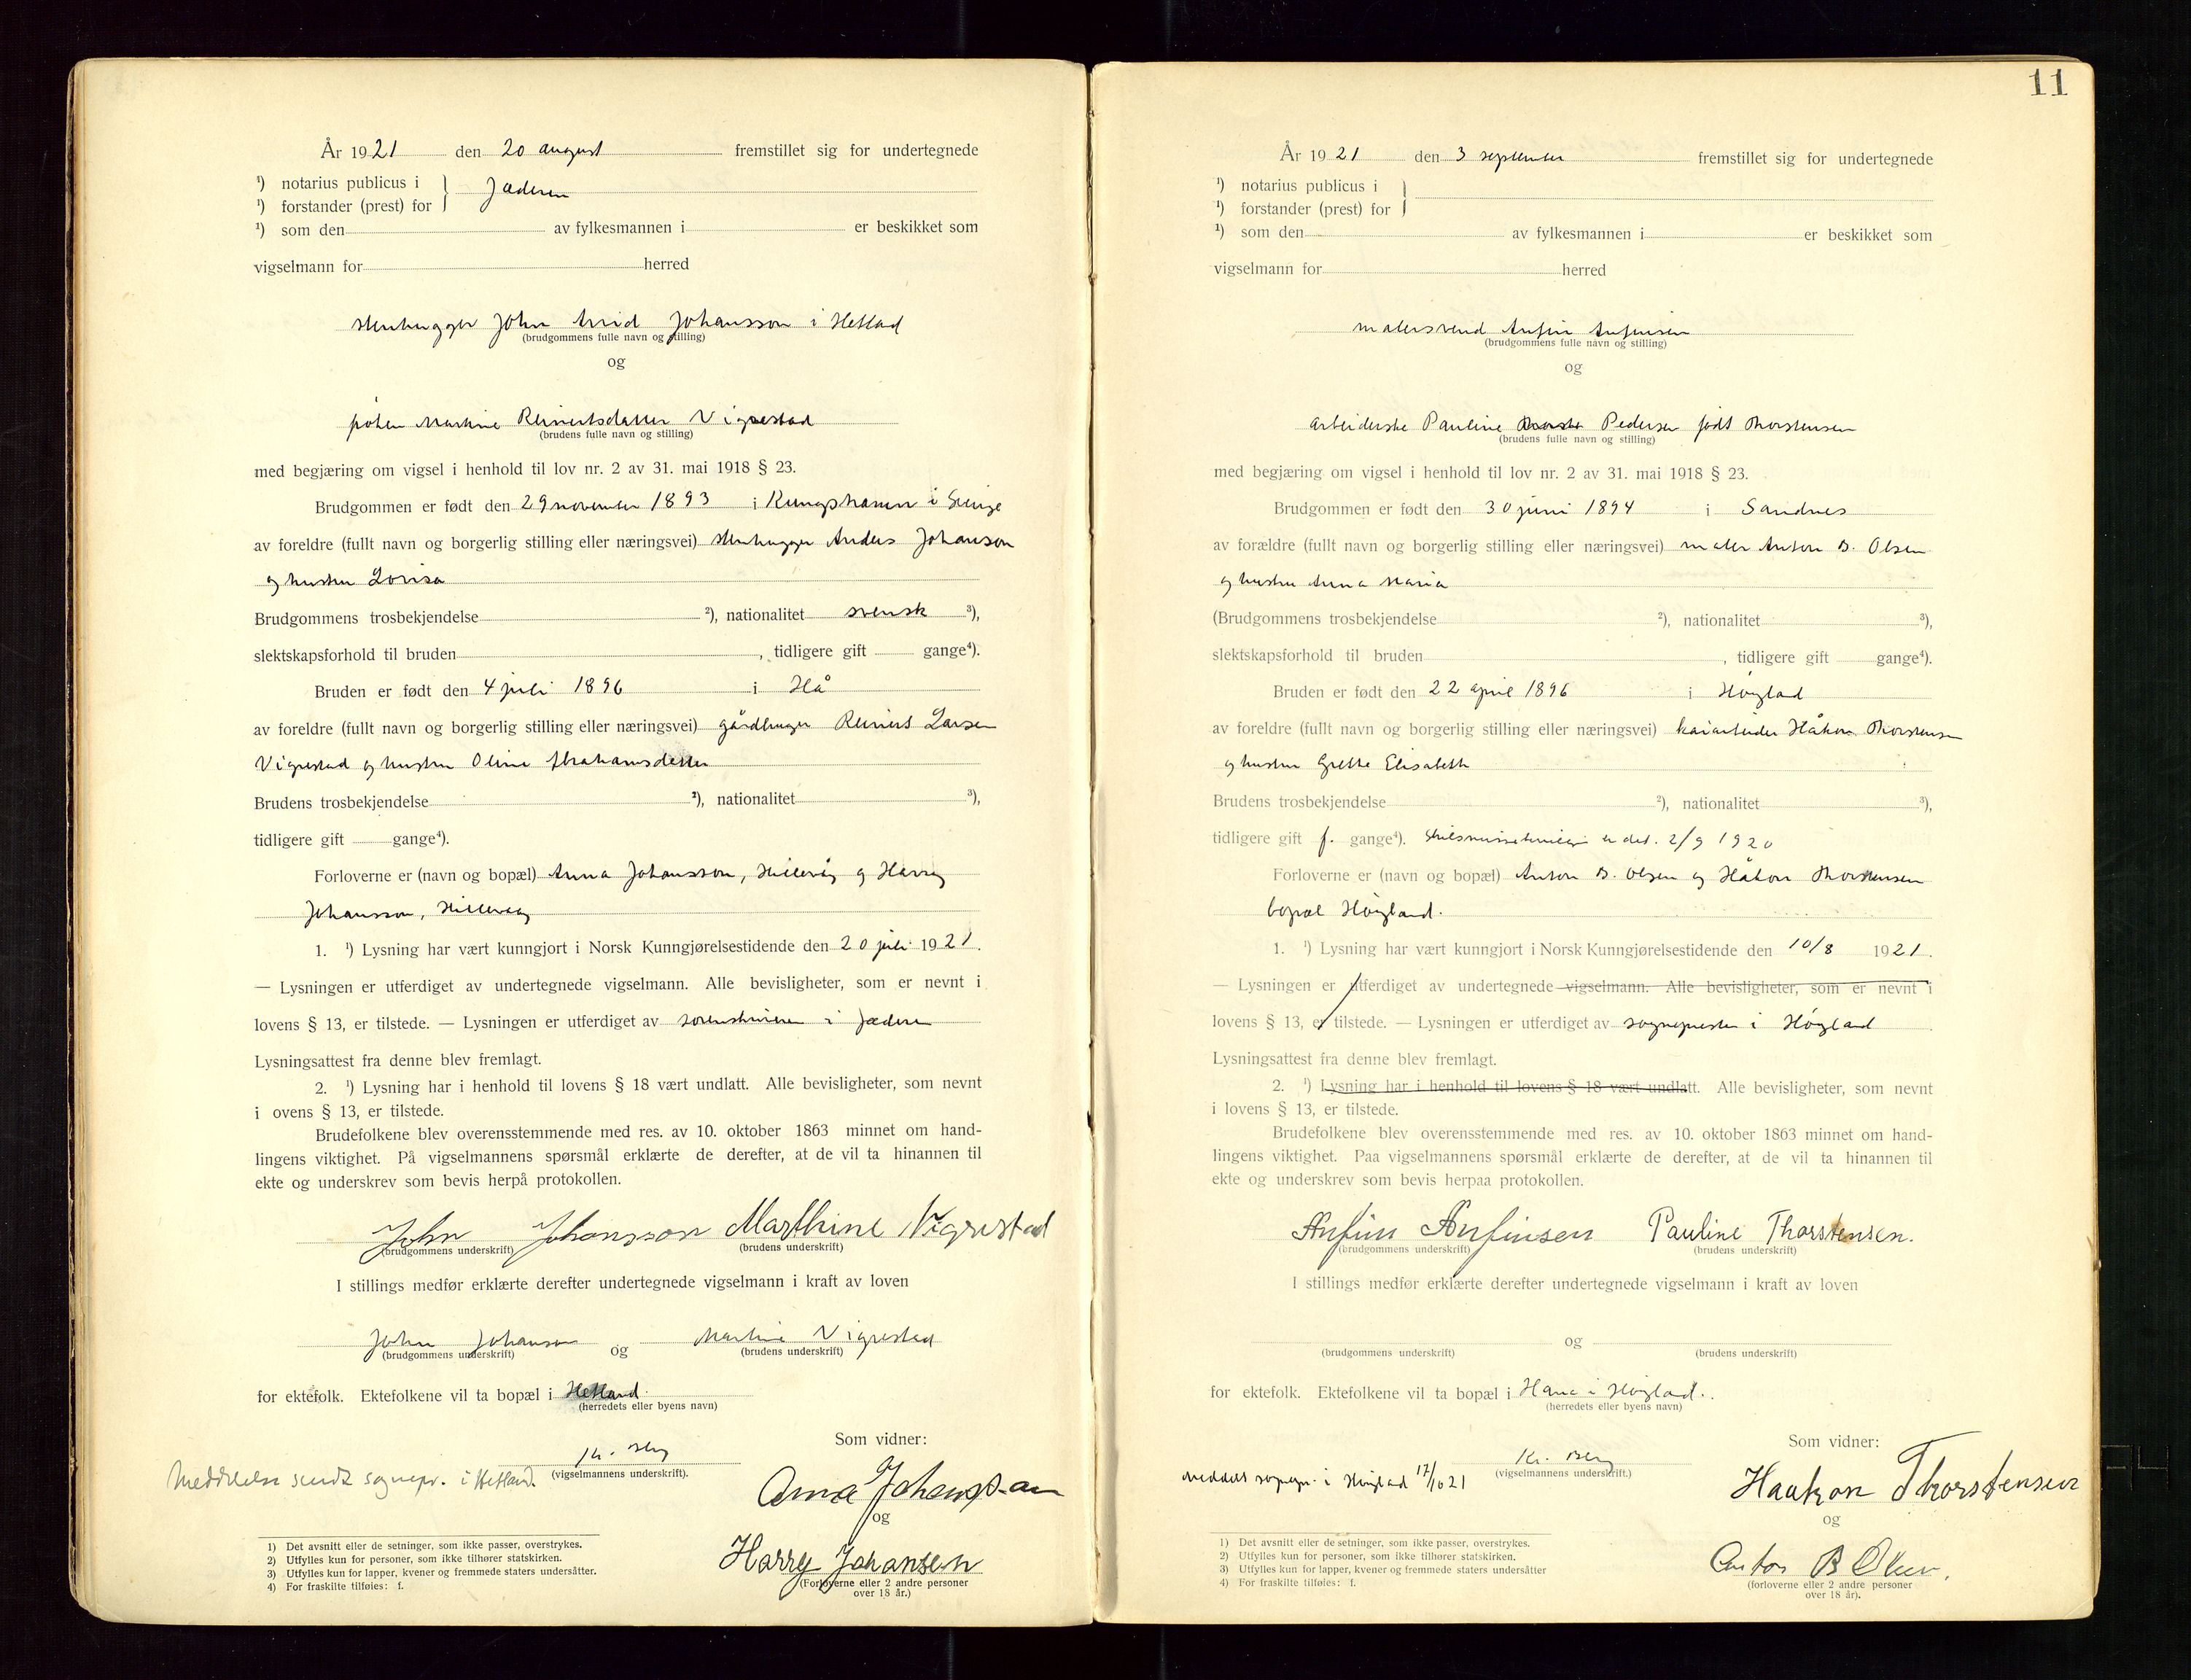 År 1921 den 20 august fremstillet sig for undertegnede
¹) notarius publicus i } Jæderen
¹) forstander (prest) for
¹) som den av fylkesmannen i er beskikket som
vigselmann for herred
stenhugger John Arvid Johansson i Hetland
(brudgommens fulle navn og stilling)
og
frøken Martine Reinertsdatter Vigrestad
(brudens fulle navn og stilling)
med begjæring om vigsel i henhold til lov nr. 2 av 31. mai 1918 § 23.
Brudgommen er født den 29 november 1893 i Kungshamn i Sverige
av foreldre (fullt navn og borgerlig stilling eller næringsvei) stenhugger Anders Johanson
og hustru Lovisa
Brudgommens trosbekjendelse ²), nationalitet svensk ³),
slektskapsforhold til bruden , tidligere gift gange⁴).
Bruden er født den 4 juli 1896 i Hå
av foreldre (fullt navn og borgerlig stilling eller næringsvei) gårdbruger Reinert Larsen
Vigrestad og hustru Oline Abrahamsdatter
Brudens trosbekjendelse ²), nationalitet ³),
tidligere gift gange⁴).
Forloverne er (navn og bopæl) Anna Johansson, Hillevåg og Harry
Johansson, Hillevaag
1. ¹) Lysning har vært kunngjort i Norsk Kunngjørelsestidende den 20 juli 1921.
— Lysningen er utferdiget av undertegnede vigselmann. Alle bevisligheter, som er nevnt i
lovens § 13, er tilstede. — Lysningen er utferdiget av sorenskriveren i Jæderen
Lysningsattest fra denne blev fremlagt.
2. ¹) Lysning har i henhold til lovens § 18 vært undlatt. Alle bevisligheter, som nevnt
i ovens § 13, er tilstede.
Brudefolkene blev overensstemmende med res. av 10. oktober 1863 minnet om hand-
lingens viktighet. På vigselmannens spørsmål erklærte de derefter, at de vil ta hinannen til
ekte og underskrev som bevis herpå protokollen.
John Johansson Marthine Vigrestad
(brudgommens underskrift) (brudens underskrift)
I stillings medfør erklærte derefter undertegnede vigselmann i kraft av loven
John Johanson og Martine Vigrestad
(brudgommens underskrift) (brudens underskrift)
for ektefolk. Ektefolkene vil ta bopæl i Hetland.
(herredets eller byens navn)
Som vidner:
Kr. Berg
(vigselmannens underskrift).
Meddelelse sendt sognepr. i Hetland.
Anna Johansson
og
Harry Johansen
(Forloverne eller 2 andre personer
over 18 år.)
1) Det avsnitt eller de setninger, som ikke passer, overstrykes.
2) Utfylles kun for personer, som ikke tilhører statskirken.
3) Utfylles kun for lapper, kvener og fremmede staters undersåtter.
4) For fraskilte tilføies: f.
11
År 1921 den 3 september fremstillet sig for undertegnede
¹) notarius publicus i }
¹) forstander (prest) for
¹) som den av fylkesmannen i er beskikket som
vigselmann for herred
malersvend Anfin Anfinsen
(brudgommens fulle navn og stilling)
og
arbeiderske Pauline Pedersen født Thorstensen
(brudens fulle navn og stilling)
med begjæring om vigsel i henhold til lov nr. 2 av 31. mai 1918 § 23.
Brudgommen er født den 30 juni 1894 i Sandnes
av forældre (fullt navn og borgerlig stilling eller næringsvei) maler Anton B. Olsen
og hustru Anna Maria
(Brudgommens trosbekjendelse ²), nationalitet ³),
slektskapsforhold til bruden , tidligere gift gange⁴).
Bruden er født den 22 april 1896 i Høyland
av foreldre (fullt navn og borgerlig stilling eller næringsvei) kaiarbeider Håkon Thorstensen
og hustru Grethe Elisabeth
Brudens trosbekjendelse ²), nationalitet ³),
tidligere gift f. gange⁴). Skilsmissebevilgn er dat. 2/9 1920
Forloverne er (navn og bopæl) Anton B. Olsen og Håkon Thorstensen
bopæl Høyland.
1. ¹) Lysning har vært kunngjort i Norsk Kunngjørelsestidende den 10/8 1921.
— Lysningen er utferdiget av undertegnede vigselmann. Alle bevisligheter, som er nevnt i
lovens § 13, er tilstede. — Lysningen er utferdiget av sognepresten i Høyland
Lysningsattest fra denne blev fremlagt.
2. ¹) Lysning har i henhold til lovens § 18 vært undlatt. Alle bevisligheter, som nevnt
i lovens § 13, er tilstede.
Brudefolkene blev overensstemmende med res. av 10. oktober 1863 minnet om hand-
lingens viktighet. Paa vigselmannens spørsmål erklærte de derefter, at de vil ta hinannen til
ekte og underskrev som bevis herpaa protokollen.
Anfin Anfinsen Pauline Thorstensen.
(brudgommens underskrift) (brudens underskrift)
I stillings medfør erklærte derefter undertegnede vigselmann i kraft av loven
og
(brudgommens underskrift) (brudens underskrift)
for ektefolk. Ektefolkene vil ta bopæl i Hana i Høyland.
(herredets eller byens navn)
Som vidner:
Kr. Berg
(vigselmannens underskrift.)
meddelt sognepr. i Høyland 17/10 21
Haakon Thorstensen
og
Anton B Olsen.
(forloverne eller 2 andre personer
over 18 år).
1) Det avsnitt eller de setninger, som ikke passer, overstrykes.
2) Utfylles kun for personer, som ikke tilhører statskirken.
3) Utfylles kun for lapper, kvener og fremmede staters undersåtter
4) For fraskilte tilføies: f.